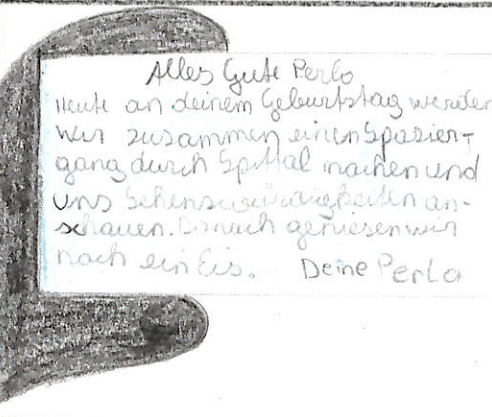 Alles Gute Perlo
Heute an deinem Geburtstag werden
wir zusammen einen Spazier-
gang durch Spittal machen und
uns Sehenswürdigkeiten an-
schauen. Danach geniesen wir
noch ein Eis. Deine Perla